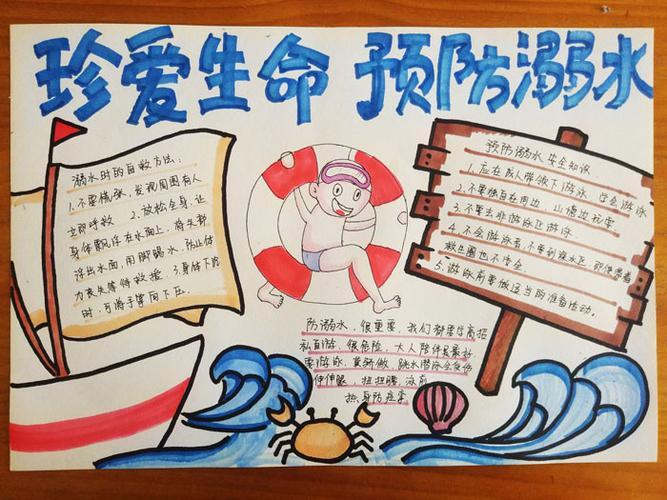 珍爱生命 预防溺水
溺水时的自救方法：
1.不要慌张，发现周围有人
立即呼救 2.放松全身，让
身体飘浮在水面上，将头部
浮出水面，用脚踢水，防止体
力丧失等待救援 3.身体下沉
时，可将手掌向下压。
预防溺水安全知识
1.应在成人带领下游泳 学会游泳
2.不要独自在河边 山塘边玩耍
3.不要去非游泳区游泳
4.不会游泳者，不要到深水区，即使带着
救生圈也不安全。
5.游泳前要做适当的准备活动。
防溺水，很重要，我们都要学高招
私自游，很危险，大人陪伴是最好
要游泳，莫骄傲，跳水潜泳
伸伸腿，扭扭腰，泳前
热身防痉挛